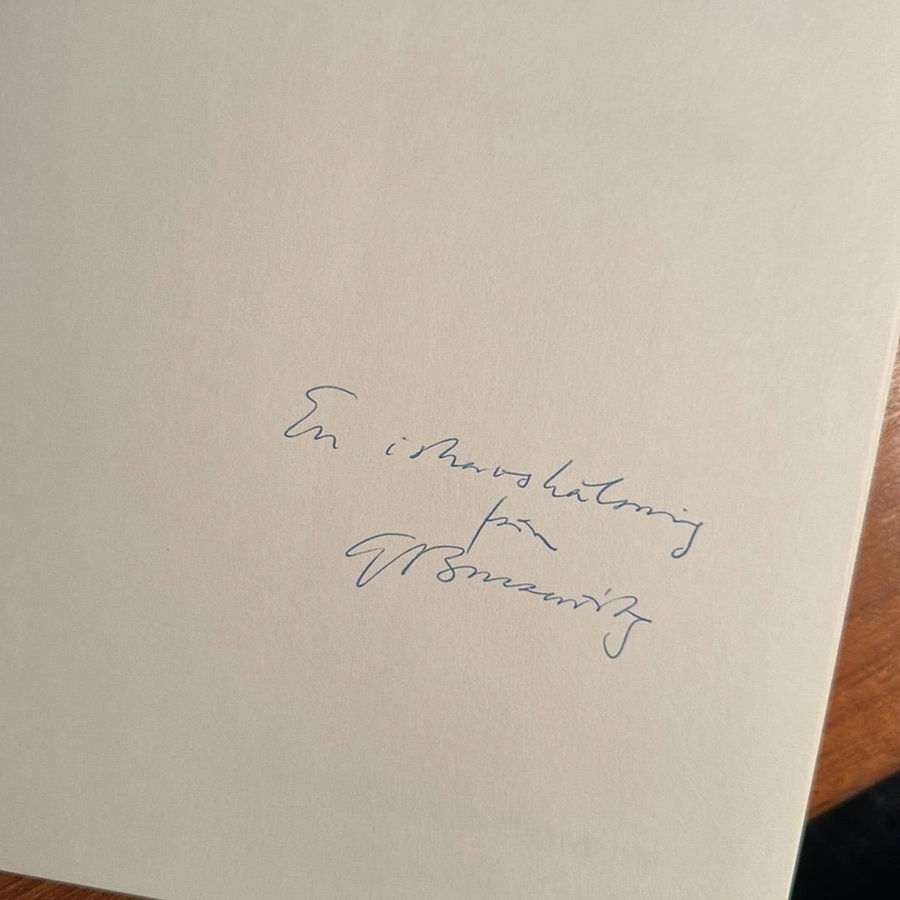 En ishavshälsning
från
G Brusewitz